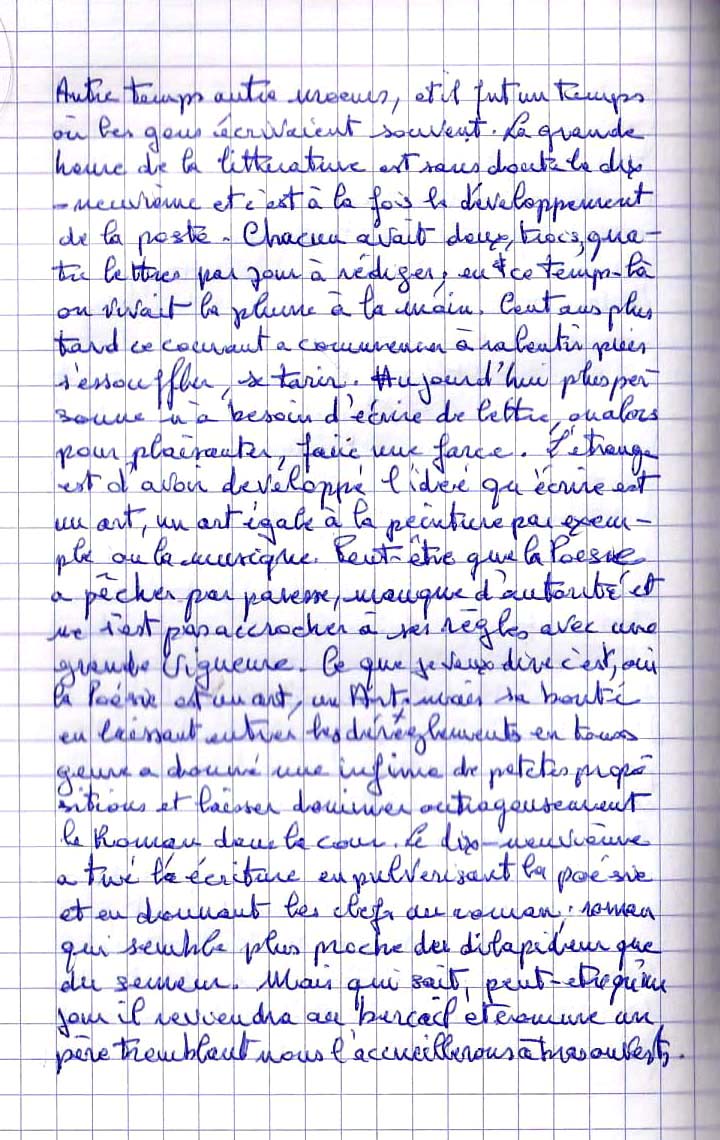 Autre temps autre moeurs, et il fut un temps
où les gens écrivaient souvent. La grande
heure de la littérature est sans doute le dix
-neuvième et c'est à la fois le développement
de la poste. Chacun avait deux, trois, qua-
tre lettres par jour à rédiger, en ce temps-là
on vivait la plume à la main. Cent ans plus
tard ce courant a commencer à ralentir puis
s'essouffler, se tarir. Aujourd'hui plus per
sonne n'a besoin d'écrire de lettre, ou alors
pour plaisanter, faire une farce. L'étrange
est d'avoir développé l'idée qu'écrire est
un art, un art égale à la peinture par exem-
ple ou la musique. Peut-être que la Poésie
a pêcher par paresse, manque d'autorité et
ne s'est pas accrocher à ses règles avec une
grande vigueure. Ce que je veux dire c'est, oui
la Poésie est un art, un Art mais sa bonté
en laissant entrer les déréglements en tous
genre a donné une infime de petites propo
sitions et laisser dominer outrageusement
le Roman dans la cour. Le dix-neuvième
a tué l'écriture en pulverisant la poésie
et en donnant les clefs au roman; roman
qui semble plus proche du dilapideur que
du semeur. Mais qui sait, peut-etre qu'un
jour il reviendra au bercail et comme un
père tremblant nous l'accueillerons à bras ouverts.